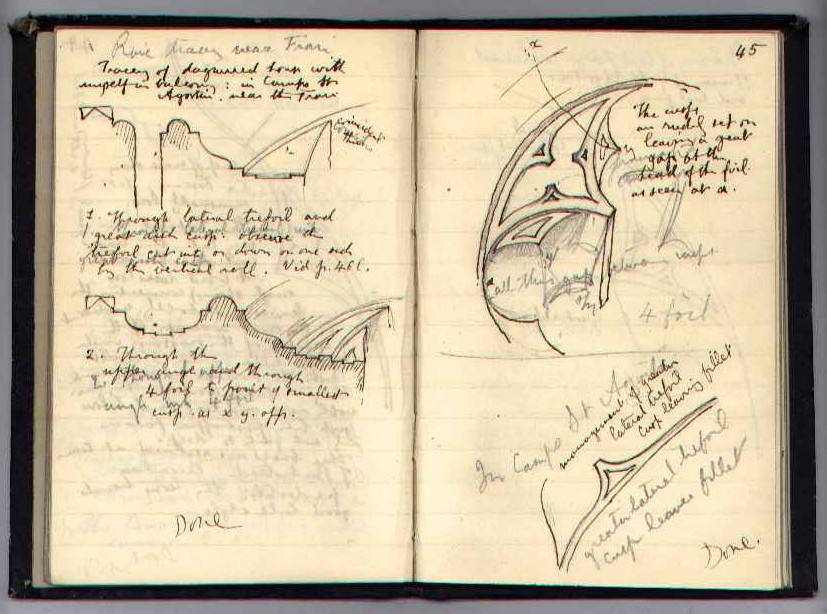 Rare tracery near Frari
Tracery of daguerred house with
myself in balcony: in Campo St
Agostin. near the Frari
coincident
with
1. Through lateral trefoil and
great arch cusp: observe the
trefoil cut out or down on one side
by the vertical roll. Vid p. 46 l.
2. Through the
upper and through
4foil to point of smallest
cusp. as x y. opp.
Done
45
x
The cusps
are rudely set on
leaving a great
gap at the
head of the foil.
as seen at a.
y
a
all this gap between cusps.
4 foil
In Campo St Agostin
management of greater
lateral trefoil
cusp leaving fillet
greater lateral trefoil
cusp leaves fillet
Done.